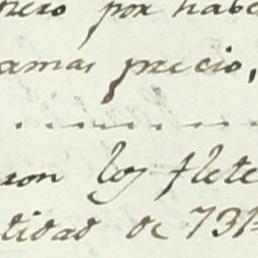 nero por habe
amas precio,
. _ . _ . _ . _ . _
ron los flete
tidad de 731